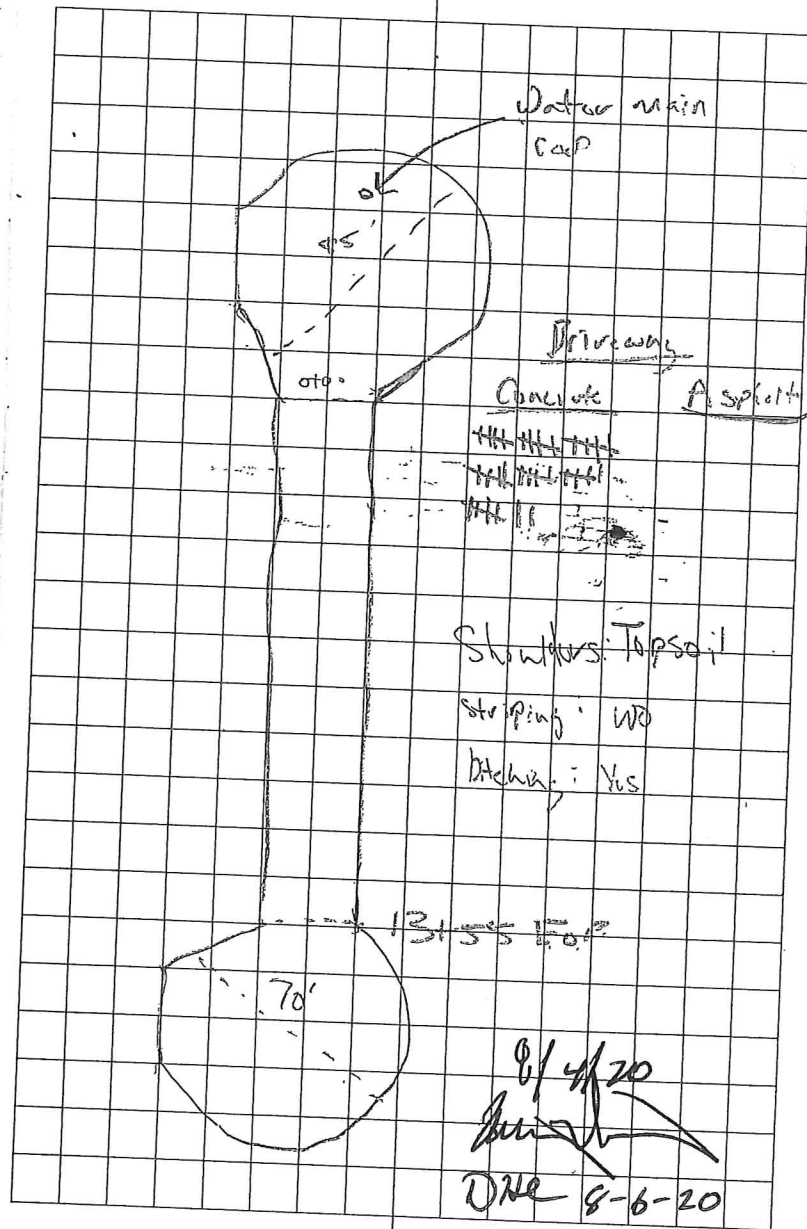 Water main
Cap
0+00
Driveway
Concrete
Asphalt
Shoulders: Topsoil
Striping: NO
Ditching: Yes
13+55 E.O.P.
70'
8/4/20
8-6-20